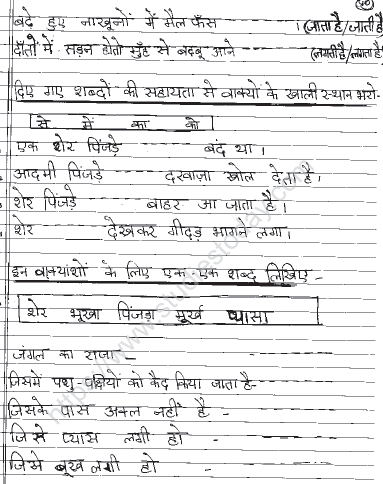 ४०
बढ़े हुए नाखूनों में मैल फँस ------------ । (जाता है/जाती है
दाँतों में सड़न होतो मुँह से बदबू आने ------------ (लगती है/लगता है
दिए गए शब्दों की सहायता से वाक्यों के खाली स्थान भरो-
से में का को
एक शेर पिंजड़े ------------ बंद था।
आदमी पिंजड़े ------------ दरवाज़ा खोल देता है।
शेर पिंजड़े ------------ बाहर आ जाता है।
शेर ------------ देखकर गीदड़ भागने लगा।
इन वाक्यांशों के लिए एक एक शब्द लिखिए -
शेर भूखा पिंजड़ा मूर्ख प्यासा
जंगल का राजा - ------------
जिसमें पशु-पक्षियों को कैद किया जाता है- ------------
जिसके पास अक्ल नहीं है - ------------
जिसे प्यास लगी हो - ------------
जिसे भूख लगी हो - ------------
https://www.studiestoday.com